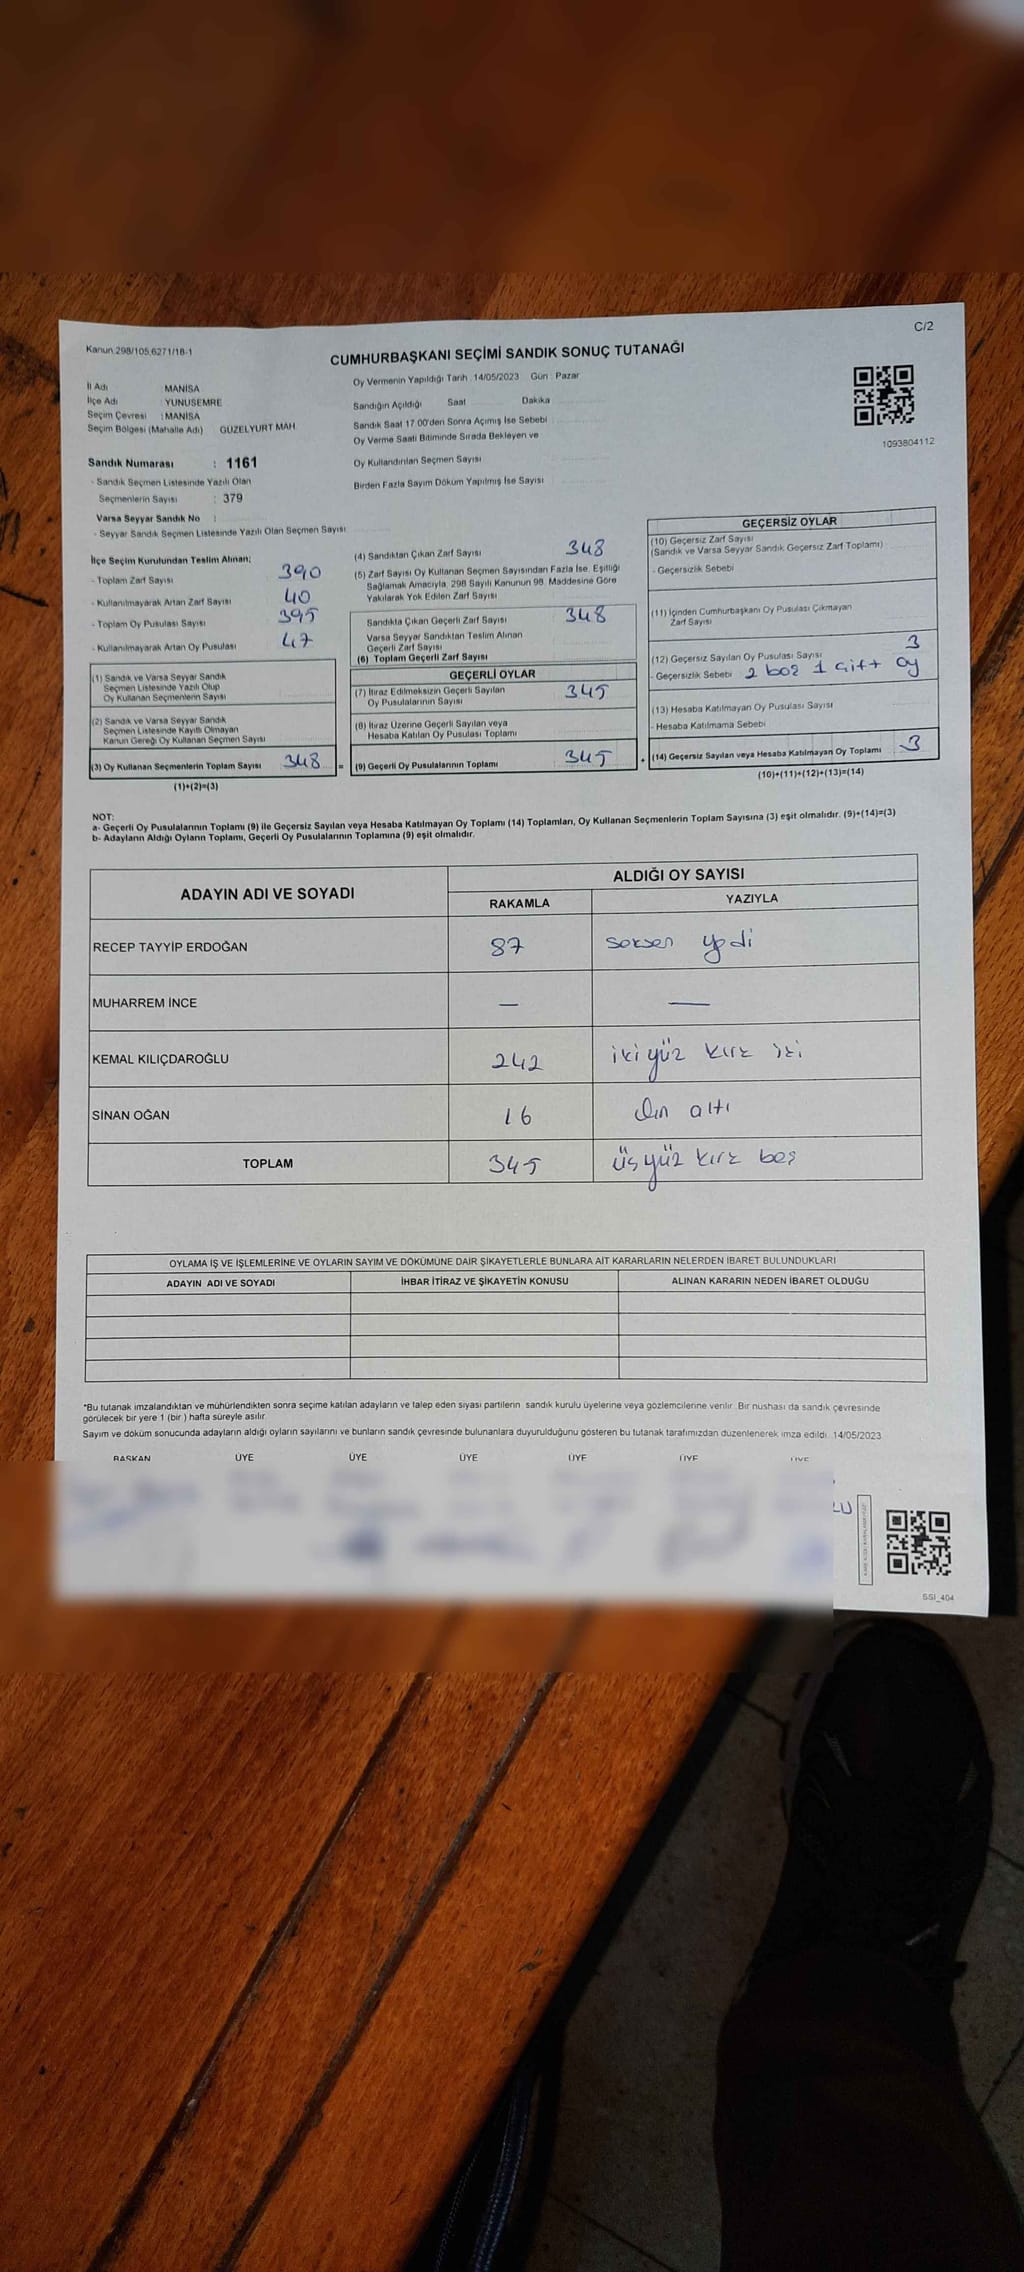 C/2
Kanun 298/105,6271/18-1
CUMHURBAŞKANI SEÇİMİ SANDIK SONUÇ TUTANAĞI
İl Adı : MANİSA
İlçe Adı : YUNUSEMRE
Seçim Çevresi : MANİSA
Seçim Bölgesi (Mahalle Adı) GÜZELYURT MAH.
Sandık Numarası : 1161
- Sandık Seçmen Listesinde Yazılı Olan
Seçmenlerin Sayısı : 379
Varsa Seyyar Sandık No :
- Seyyar Sandık Seçmen Listesinde Yazılı Olan Seçmen Sayısı
Oy Vermenin Yapıldığı Tarih :14/05/2023 Gün : Pazar
Sandığın Açıldığı Saat Dakika
Sandık Saat 17.00'den Sonra Açımış İse Sebebi
Oy Verme Saati Bitiminde Sırada Bekleyen ve
Oy Kullandırılan Seçmen Sayısı
Birden Fazla Sayım Döküm Yapılmış İse Sayısı
1093804112
İlçe Seçim Kurulundan Teslim Alınan;
- Toplam Zarf Sayısı 390
- Kullanılmayarak Artan Zarf Sayısı 40
- Toplam Oy Pusulası Sayısı 395
- Kullanılmayarak Artan Oy Pusulası 47
(1) Sandık ve Varsa Seyyar Sandık
Seçmen Listesinde Yazılı Olup
Oy Kullanan Seçmenlerin Sayısı
(2) Sandık ve Varsa Seyyar Sandık
Seçmen Listesinde Kayıtlı Olmayan
Kanun Gereği Oy Kullanan Seçmen Sayısı
(3) Oy Kullanan Seçmenlerin Toplam Sayısı 348 =
(1)+(2)=(3)
(4) Sandıktan Çıkan Zarf Sayısı 348
(5) Zarf Sayısı Oy Kullanan Seçmen Sayısından Fazla İse, Eşitliği
Sağlamak Amacıyla, 298 Sayılı Kanunun 98. Maddesine Göre
Yakılarak Yok Edilen Zarf Sayısı
Sandıkta Çıkan Geçerli Zarf Sayısı 348
Varsa Seyyar Sandıktan Teslim Alınan
Geçerli Zarf Sayısı
(6) Toplam Geçerli Zarf Sayısı
GEÇERLİ OYLAR
(7) İtiraz Edilmeksizin Geçerli Sayılan
Oy Pusulalarının Sayısı 345
(8) İtiraz Üzerine Geçerli Sayılan veya
Hesaba Katılan Oy Pusulası Toplamı
(9) Geçerli Oy Pusulalarının Toplamı 345 +
GEÇERSİZ OYLAR
(10) Geçersiz Zarf Sayısı
(Sandık ve Varsa Seyyar Sandık Geçersiz Zarf Toplamı)
- Geçersizlik Sebebi
(11) İçinden Cumhurbaşkanı Oy Pusulası Çıkmayan
Zarf Sayısı
(12) Geçersiz Sayılan Oy Pusulası Sayısı 3
- Geçersizlik Sebebi 2 boş 1 çift oy
(13) Hesaba Katılmayan Oy Pusulası Sayısı
- Hesaba Katılmama Sebebi
(14) Geçersiz Sayılan veya Hesaba Katılmayan Oy Toplamı 3
(10)+(11)+(12)+(13)=(14)
NOT:
a- Geçerli Oy Pusulalarının Toplamı (9) ile Geçersiz Sayılan veya Hesaba Katılmayan Oy Toplamı (14) Toplamları, Oy Kullanan Seçmenlerin Toplam Sayısına (3) eşit olmalıdır. (9)+(14)=(3)
b- Adayların Aldığı Oyların Toplamı, Geçerli Oy Pusulalarının Toplamına (9) eşit olmalıdır.
ADAYIN ADI VE SOYADI ALDIĞI OY SAYISI
RAKAMLA YAZIYLA
RECEP TAYYİP ERDOĞAN 87 seksen yedi
MUHARREM İNCE — —
KEMAL KILIÇDAROĞLU 242 iki yüz kırk iki
SİNAN OĞAN 16 On altı
TOPLAM 345 üç yüz kırk beş
OYLAMA İŞ VE İŞLEMLERİNE VE OYLARIN SAYIM VE DÖKÜMÜNE DAİR ŞİKAYETLERLE BUNLARA AİT KARARLARIN NELERDEN İBARET BULUNDUKLARI
ADAYIN ADI VE SOYADI İHBAR İTİRAZ VE ŞİKAYETİN KONUSU ALINAN KARARIN NEDEN İBARET OLDUĞU
*Bu tutanak imzalandıktan ve mühürlendikten sonra seçime katılan adayların ve talep eden siyasi partilerin sandık kurulu üyelerine veya gözlemcilerine verilir. Bir nüshası da sandık çevresinde
görülecek bir yere 1 (bir ) hafta süreyle asılır.
Sayım ve döküm sonucunda adayların aldığı oyların sayılarını ve bunların sandık çevresinde bulunanlara duyurulduğunu gösteren bu tutanak tarafımızdan düzenlenerek imza edildi. 14/05/2023
BAŞKAN ÜYE ÜYE ÜYE ÜYE ÜYE ÜYE
LU
SSI_404